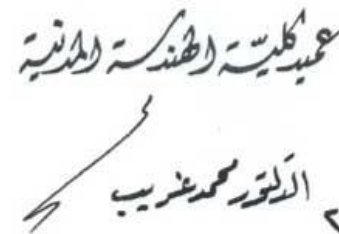 عميد كليّة الهندسة المدنية
الدكتور محمد غريب